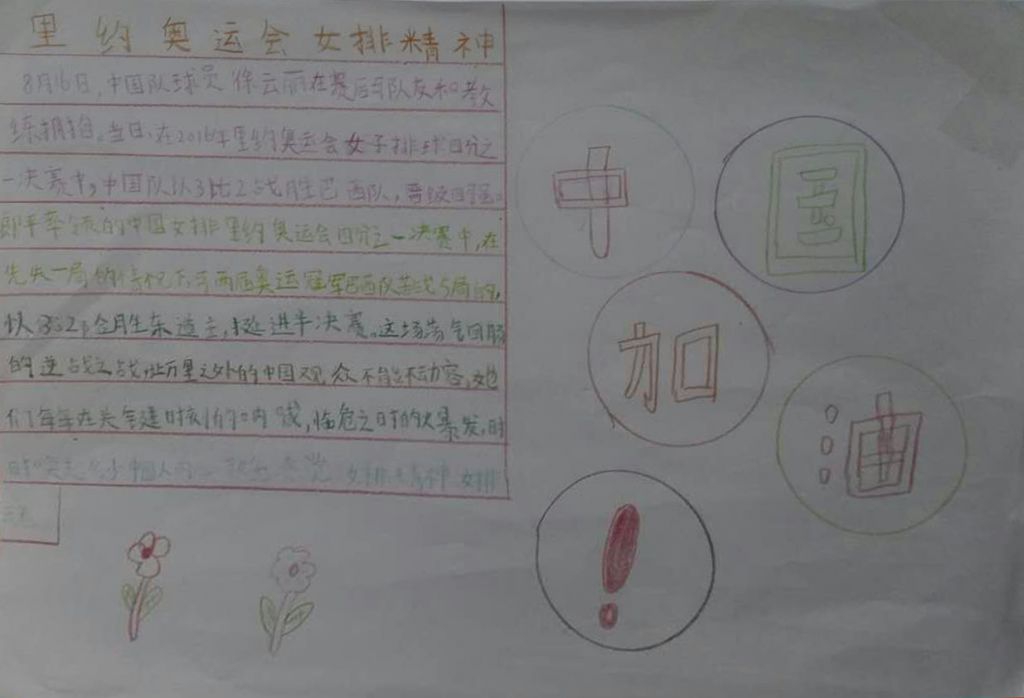 里约奥运会女排精神
8月16日,中国队球员徐云丽在赛后与队友和教
练拥抱。当日,在2016年里约奥运会女子排球四分之
一决赛中,中国队以3比2战胜巴西队,晋级四强。
郎平率领的中国女排里约奥运会四分之一决赛中,在
先失一局的情况下与两届奥运冠军巴西队苦战5局
以3:2 胜东道主,挺进半决赛。这场荡气回肠
的逆战之战,让万里之外的中国观众不能不动容,她
们每每在关键时刻的 ,临危之时的 暴发,时
时 中国人 女排精神 女排
中
国
加
油
!